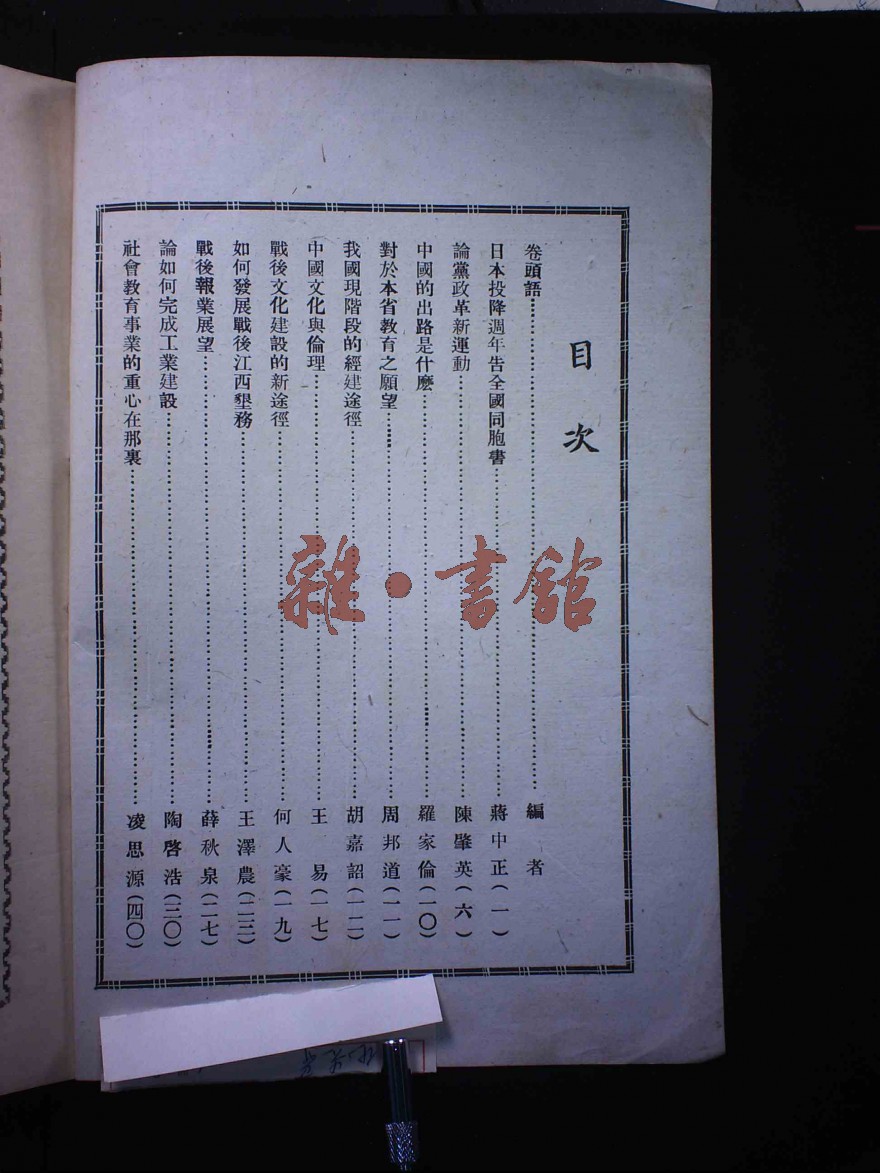 目次
卷頭語……編者
日本投降週年告全國同胞書……蔣中正(一)
論黨政革新運動……陳肇英(六)
中國的出路是什麽……羅家倫(一〇)
對於本省教育之願望……周邦道(一一)
我國現階段的經建途徑……胡嘉詔(一二)
中國文化與倫理……王易(一七)
戰後文化建設的新途徑……何人豪(一九)
如何發展戰後江西墾務……王澤農(二三)
戰後報業展望……薛秋泉(二七)
論如何完成工業建設……陶啓浩(三〇)
社會教育事業的重心在那裏……凌思源(四〇)
雜·書館